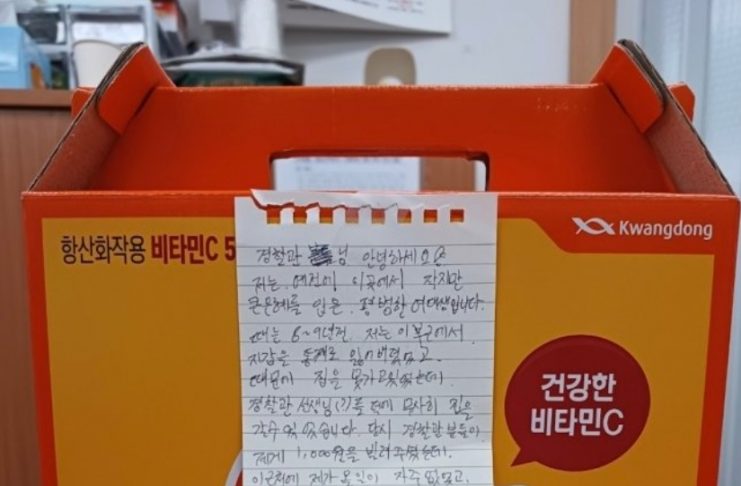 항산화작용 비타민C 5
Kwangdong
경찰관 님 안녕하세요
저는 예전에 이곳에서 작지만
큰은혜를 입은 평범한 여대생입니다.
때는 8~9년전. 저는 이 부근에서
지갑을 통째로 잃어버렸었고
때문에 집을 못가고있었는데
경찰관 선생님(?)들 덕에 무사히 집을
갈수 있었습니다. 당시 경찰관분들이
제게 1,000원을 빌려주셨는데.
이근처에 제가 올일이 자주 없었고.
건강한
비타민C